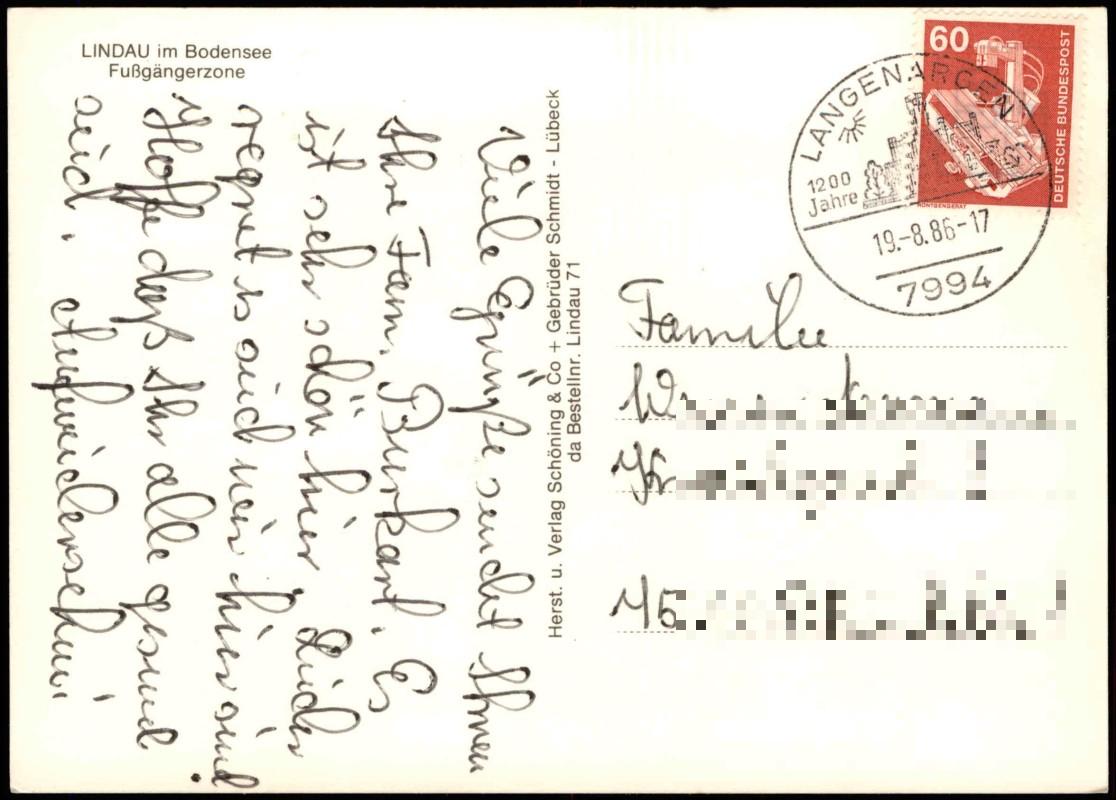 LINDAU im Bodensee
Fußgängerzone
Viele Grüße sendet Ihnen
Ihre Fam. Burkart. Es
ist sehr schön hier. Leider
regnet es auch wir hier sind
Hoffe daß Ihr alle gesund
seid. Aufwiedersehen!
Herst. u. Verlag Schöning & Co + Gebrüder Schmidt - Lübeck
da Bestellnr. Lindau 71
60
DEUTSCHE BUNDESPOST
RÖNTGENGERÄT
LANGENARGEN
1200
Jahre
19.-8.86-17
7994
Familie